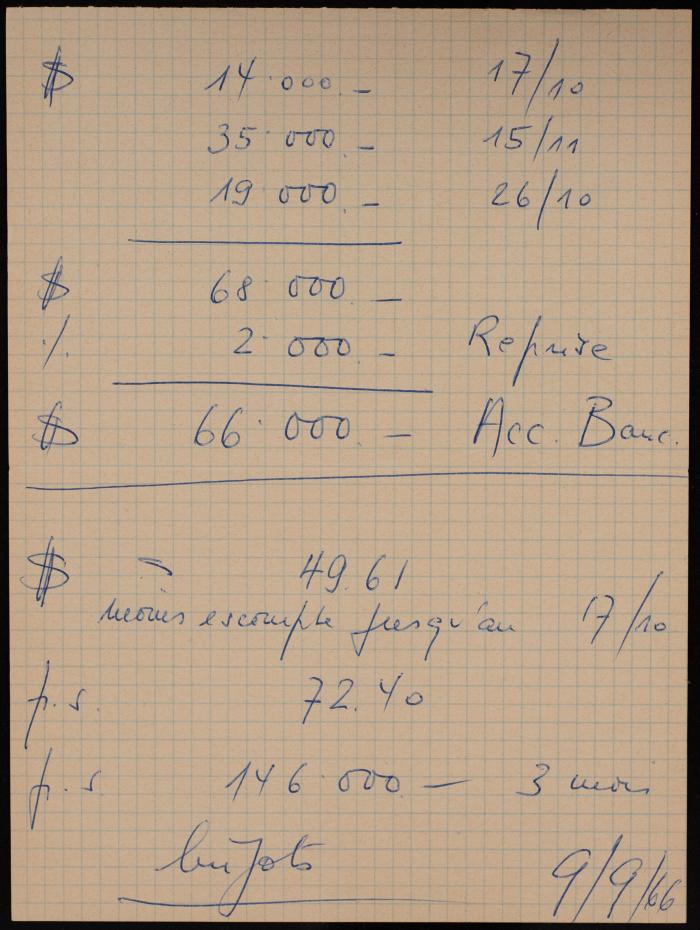 $ 14'000.— 17/10
35'000.— 15/11
19'000.— 26/10
$ 68'000.—
./. 2'000.— Reprise
$ 66'000.— Acc. Banc.
$ 49.61
moins escompte jusqu'au 17/10
f.s. 72.40
f.s. 146'000.— 3 mois
9/9/66